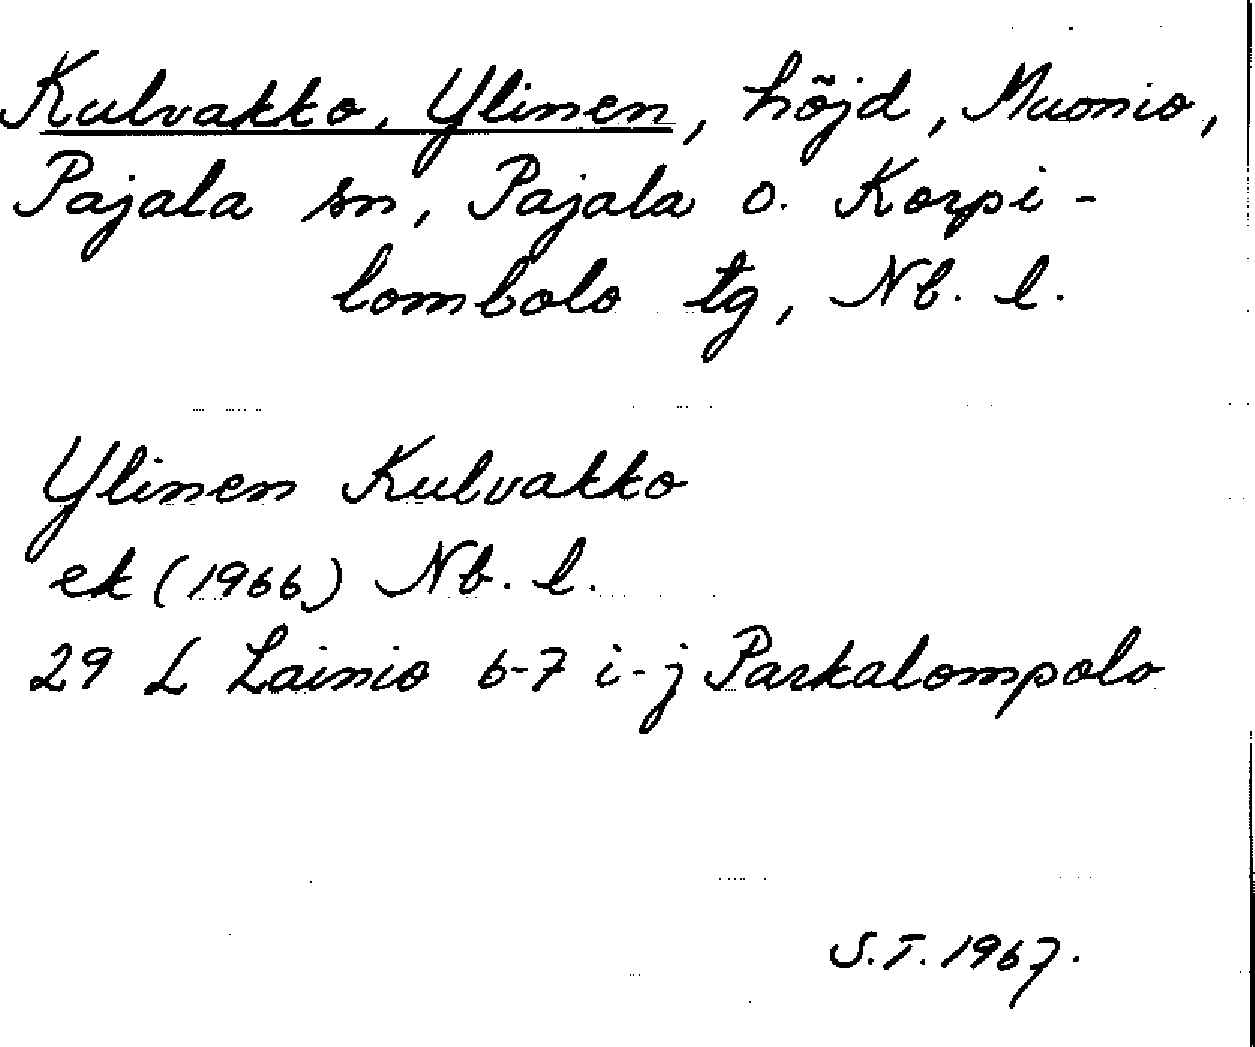 Kulvakko, Ylinen, höjd, Muonio,
Pajala sn, Pajala o. Korpi-
lombolo tg, Nb. l.
Ylinen Kulvakko
ek (1966) Nb. l.
29 L Lainio 6-7 i-j Parkalompolo
S.T. 1967.